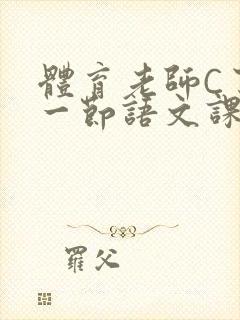 體育老師C了
一節語文課
羅父